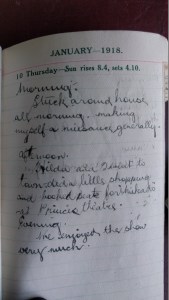 JANUARY—1918.
10 Thursday—Sun rises 8.4, sets 4.10.
Morning.
Stuck around house
all morning making
myself a nuisance generally.
Afternoon.
Hilda and I went to
town did a little shopping
and booked seats for
at Princess theatre.
Evening
We enjoyed the show
very much.